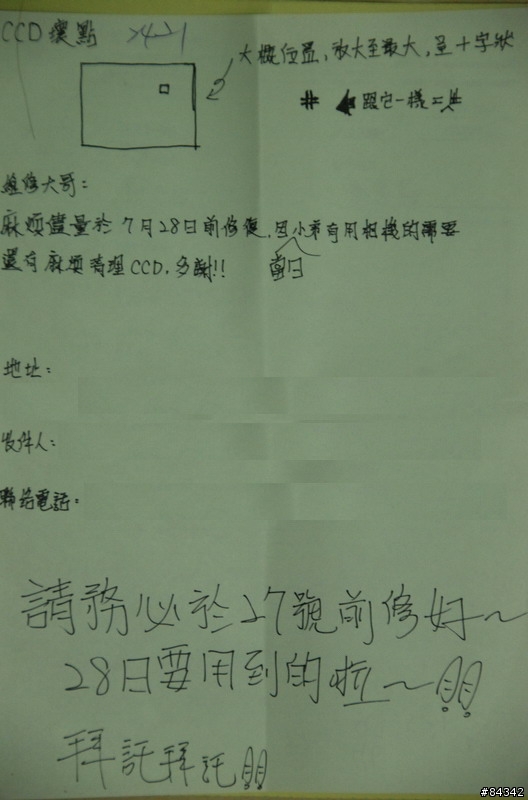 CCD壞點 24-21
大概位置，放大至最大，呈十字狀
# 跟它一樣
維修大哥：
麻煩儘量於 7月28日前修復，因小弟當日有用相機的需要
還有麻煩清理CCD，多謝!!
地址：
收件人：
聯絡電話：
請務必於27號前修好～
28日要用到的啦～!!
拜託拜託!!
#84342